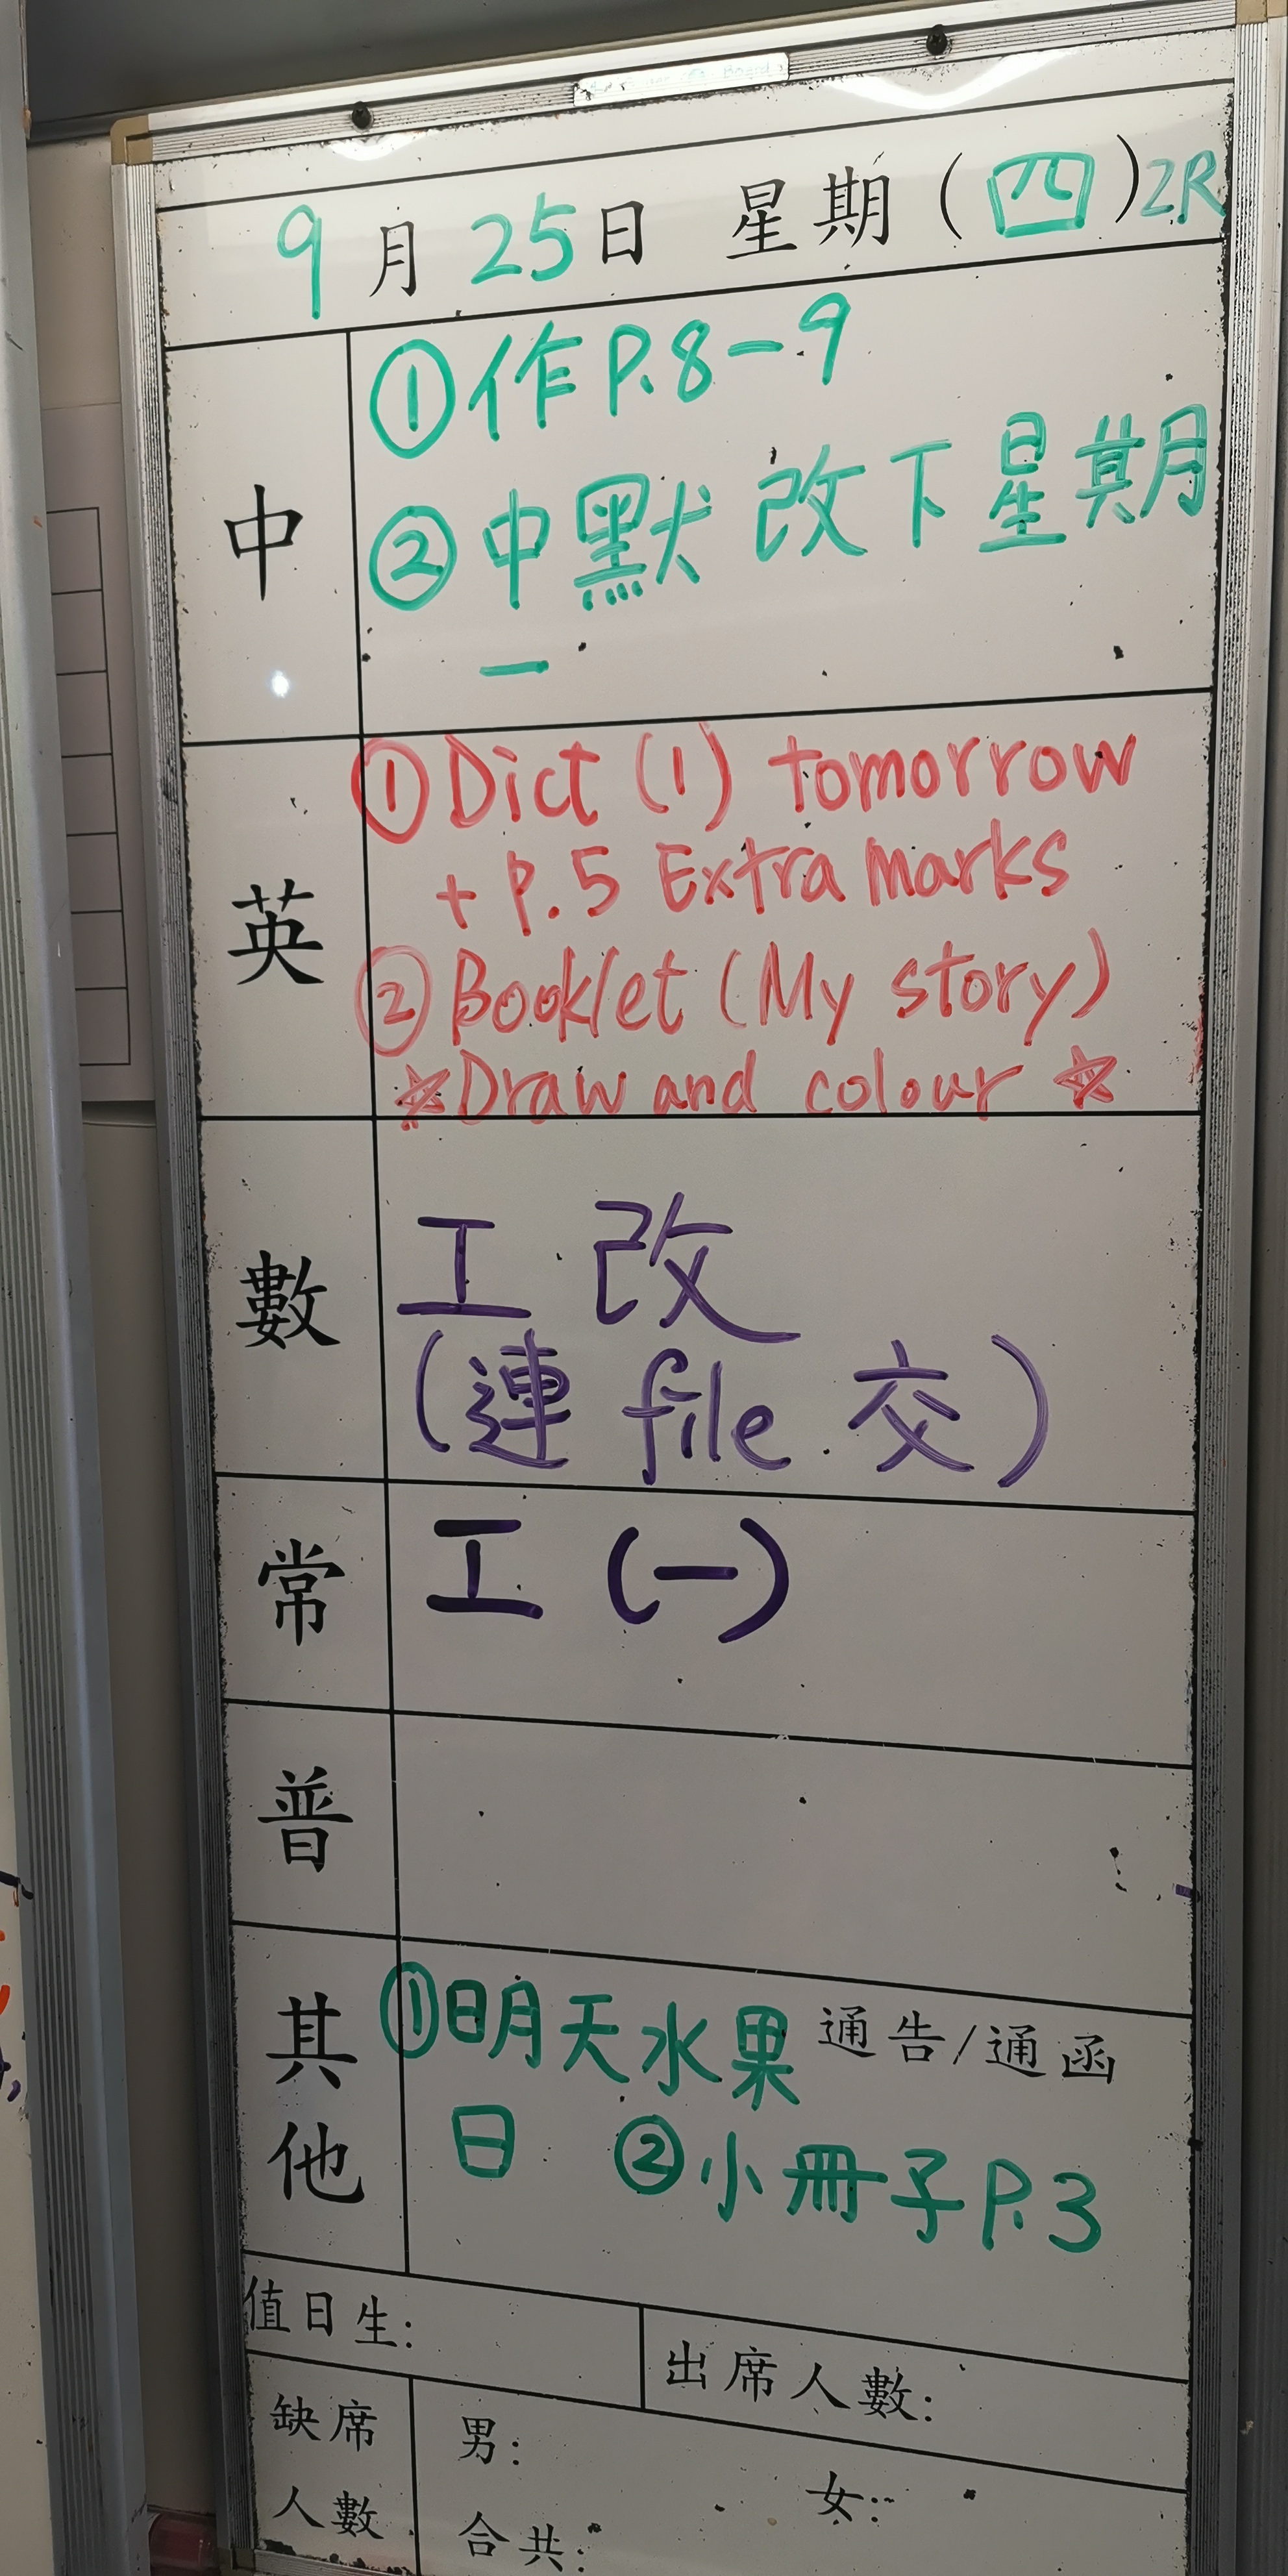 9月25日 星期(四) 2R
中
①作P.8-9
②中默改下星期
一
英
①Dict (1) tomorrow
+ P.5 Extra marks
②Booklet (My story)
☆Draw and colour☆
數
工改
(連file交)
常
工(一)
普
其他
①明天水果 通告/通函
日 ②小冊子P.3
值日生:
出席人數:
缺席
人數
男:
女:
合共: